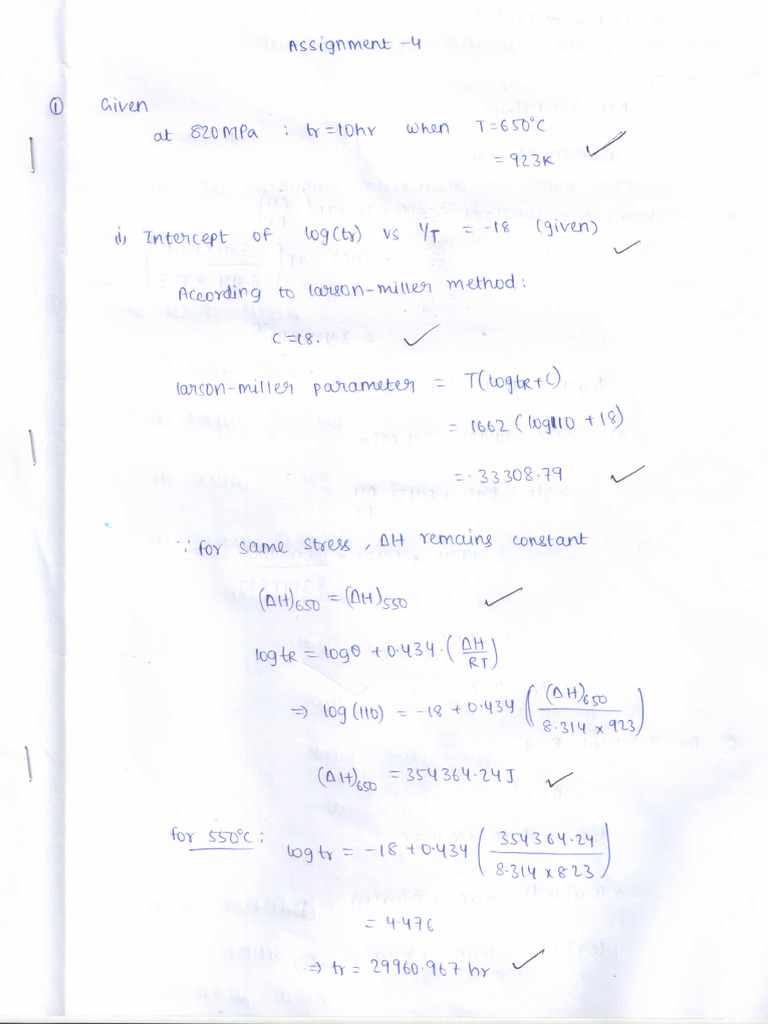 Assignment -4
① Given
at 820MPa : tr=10hr when T=650°C
= 923K
i) Intercept of log(tr) vs 1/T = -18 (given)
According to larson-miller method:
C=18.
larson-miller parameter = T(logtR+C)
= 1662 (log110 +18)
= 33308.79
∵ for same stress, ΔH remains constant
(ΔH)650 = (ΔH)550
logtR = logθ + 0.434.(ΔH/RT)
⇒ log(110) = -18 + 0.434 ((ΔH)650/8.314 x 923)
(ΔH)650 = 354364.24J
for 550°C: logtr = -18 + 0.434 (354364.24/8.314 x 823)
= 4.476
⇒ tr = 29960.967 hr